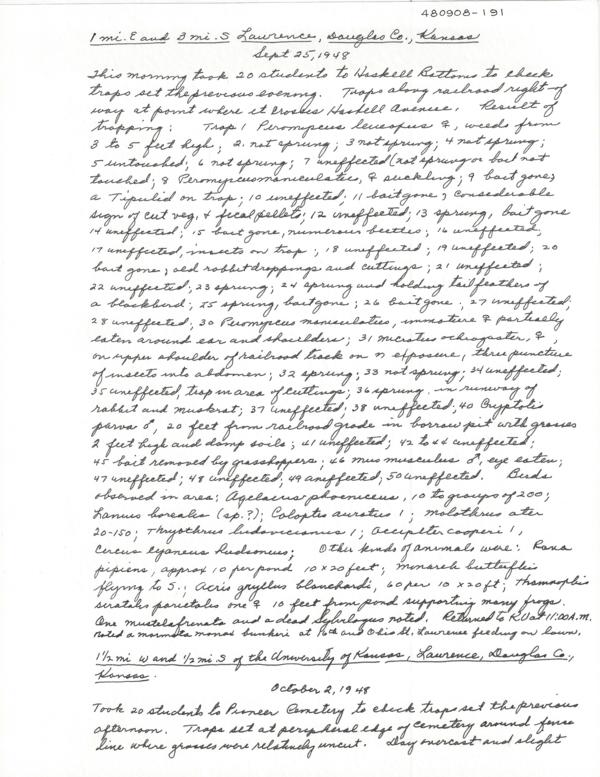 480908-191
1 mi. E and 3 mi. S Lawrence, Douglas Co., Kansas
Sept 25, 1948
This morning took 20 students to Haskell Bottoms to check
traps set the previous evening. Traps along railroad right-of
way at point where it crosses Haskell Avenue. Result of
trapping: Trap 1 Peromyscus leucopus ♀, weeds from
3 to 5 feet high; 2 not sprung; 3 not sprung; 4 not sprung;
5 untouched; 6 not sprung; 7 uneffected (not sprung or bait not
touched; 8 Peromyscus maniculatus, ♀ suckling; 9 bait gone,
a Tipulid on trap; 10 uneffected; 11 bait gone, considerable
sign of cut veg. & fecal pellets; 12 uneffected; 13 sprung, bait gone
14 uneffected; 15 bait gone, numerous beetles; 16 uneffected,
17 uneffected, insects on trap; 18 uneffected; 19 uneffected; 20
bait gone; old rabbit droppings and cuttings; 21 uneffected;
22 uneffected; 23 sprung; 24 sprung and holding tail feathers of
a blackbird; 25 sprung, bait gone; 26 bait gone. 27 uneffected;
28 uneffected; 30 Peromyscus maniculatus, immature ♀ partially
eaten around ear and shoulders; 31 Microtus ochrogaster, ♀,
on upper shoulder of railroad track on N exposure, three puncture
of insects into abdomen; 32 sprung; 33 not sprung; 34 uneffected;
35 uneffected, trap in area of cuttings; 36 sprung in runway of
rabbit and muskrat; 37 uneffected; 38 uneffected; 40 Cryptotis
parva ♂, 20 feet from railroad grade in borrow pit with grasses
2 feet high and damp soils; 41 uneffected; 42 to 44 uneffected;
45 bait removed by grasshoppers; 46 Mus musculus ♂, eye eaten;
47 uneffected; 48 uneffected; 49 uneffected, 50 uneffected. Birds
observed in area: Agelaius phoeniceus, 10 to groups of 200;
Lanius borealis (sp.?); Colaptes auratus 1; Molothrus ater
20-150; Thryothrus ludovicianus 1; Accipiter cooperi 1,
Circus cyaneus hudsonius; Other kinds of animals were: Rana
pipiens, approx 10 per pond 10 x 20 feet; monarch butterflies
flying to S.; Acris gryllus blanchardi, 60 per 10 x 20 ft; Thamnophis
sirtalis parietalis one ♀ 10 feet from pond supporting many frogs.
One Mustela frenata and a dead Sylvilagus noted. Returned to KU at 11:00 A.M.
Noted a Marmota monax bunkeri at 16th and Ohio St. Lawrence feeding on lawn.
1 1/2 mi W and 1/2 mi. S of the University of Kansas, Lawrence, Douglas Co.,
Kansas.
October 2, 1948
Took 20 students to Pioneer Cemetery to check traps set the previous
afternoon. Traps set at peripheral edge of cemetery around fence
line where grasses were relatively uncut. Day overcast and slight